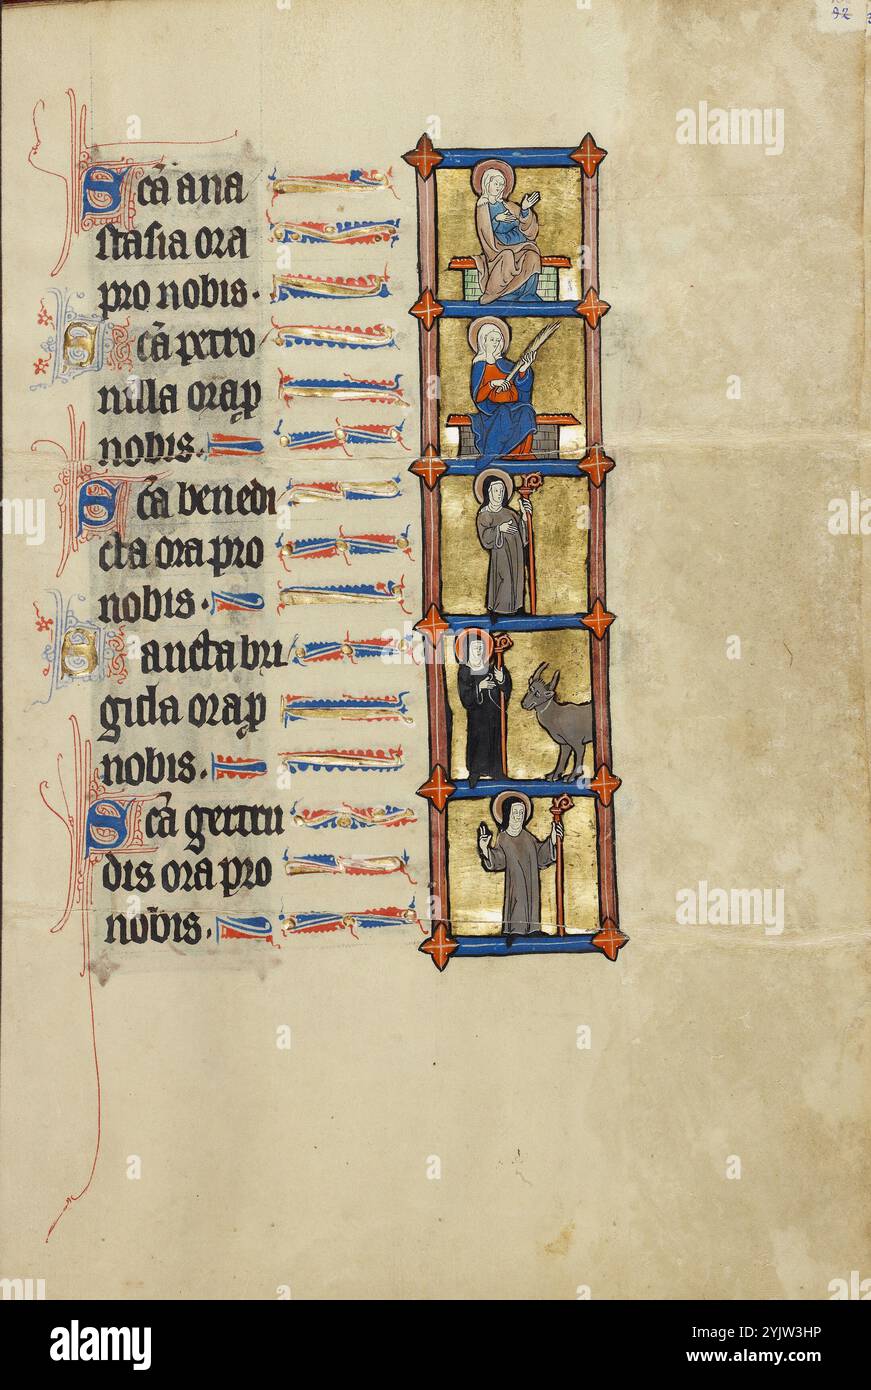 92
Sc̄a ana
stasia ora
pro nobis.
Sc̄a petro
nilla ora p̱
nobis.
Sc̄a benedi
cta ora pro
nobis.
Sancta bri
gida ora p̱
nobis.
Sc̄a gertru
dis ora pro
nobis.
alamy
Image ID: 2YJW3HP
www.alamy.com